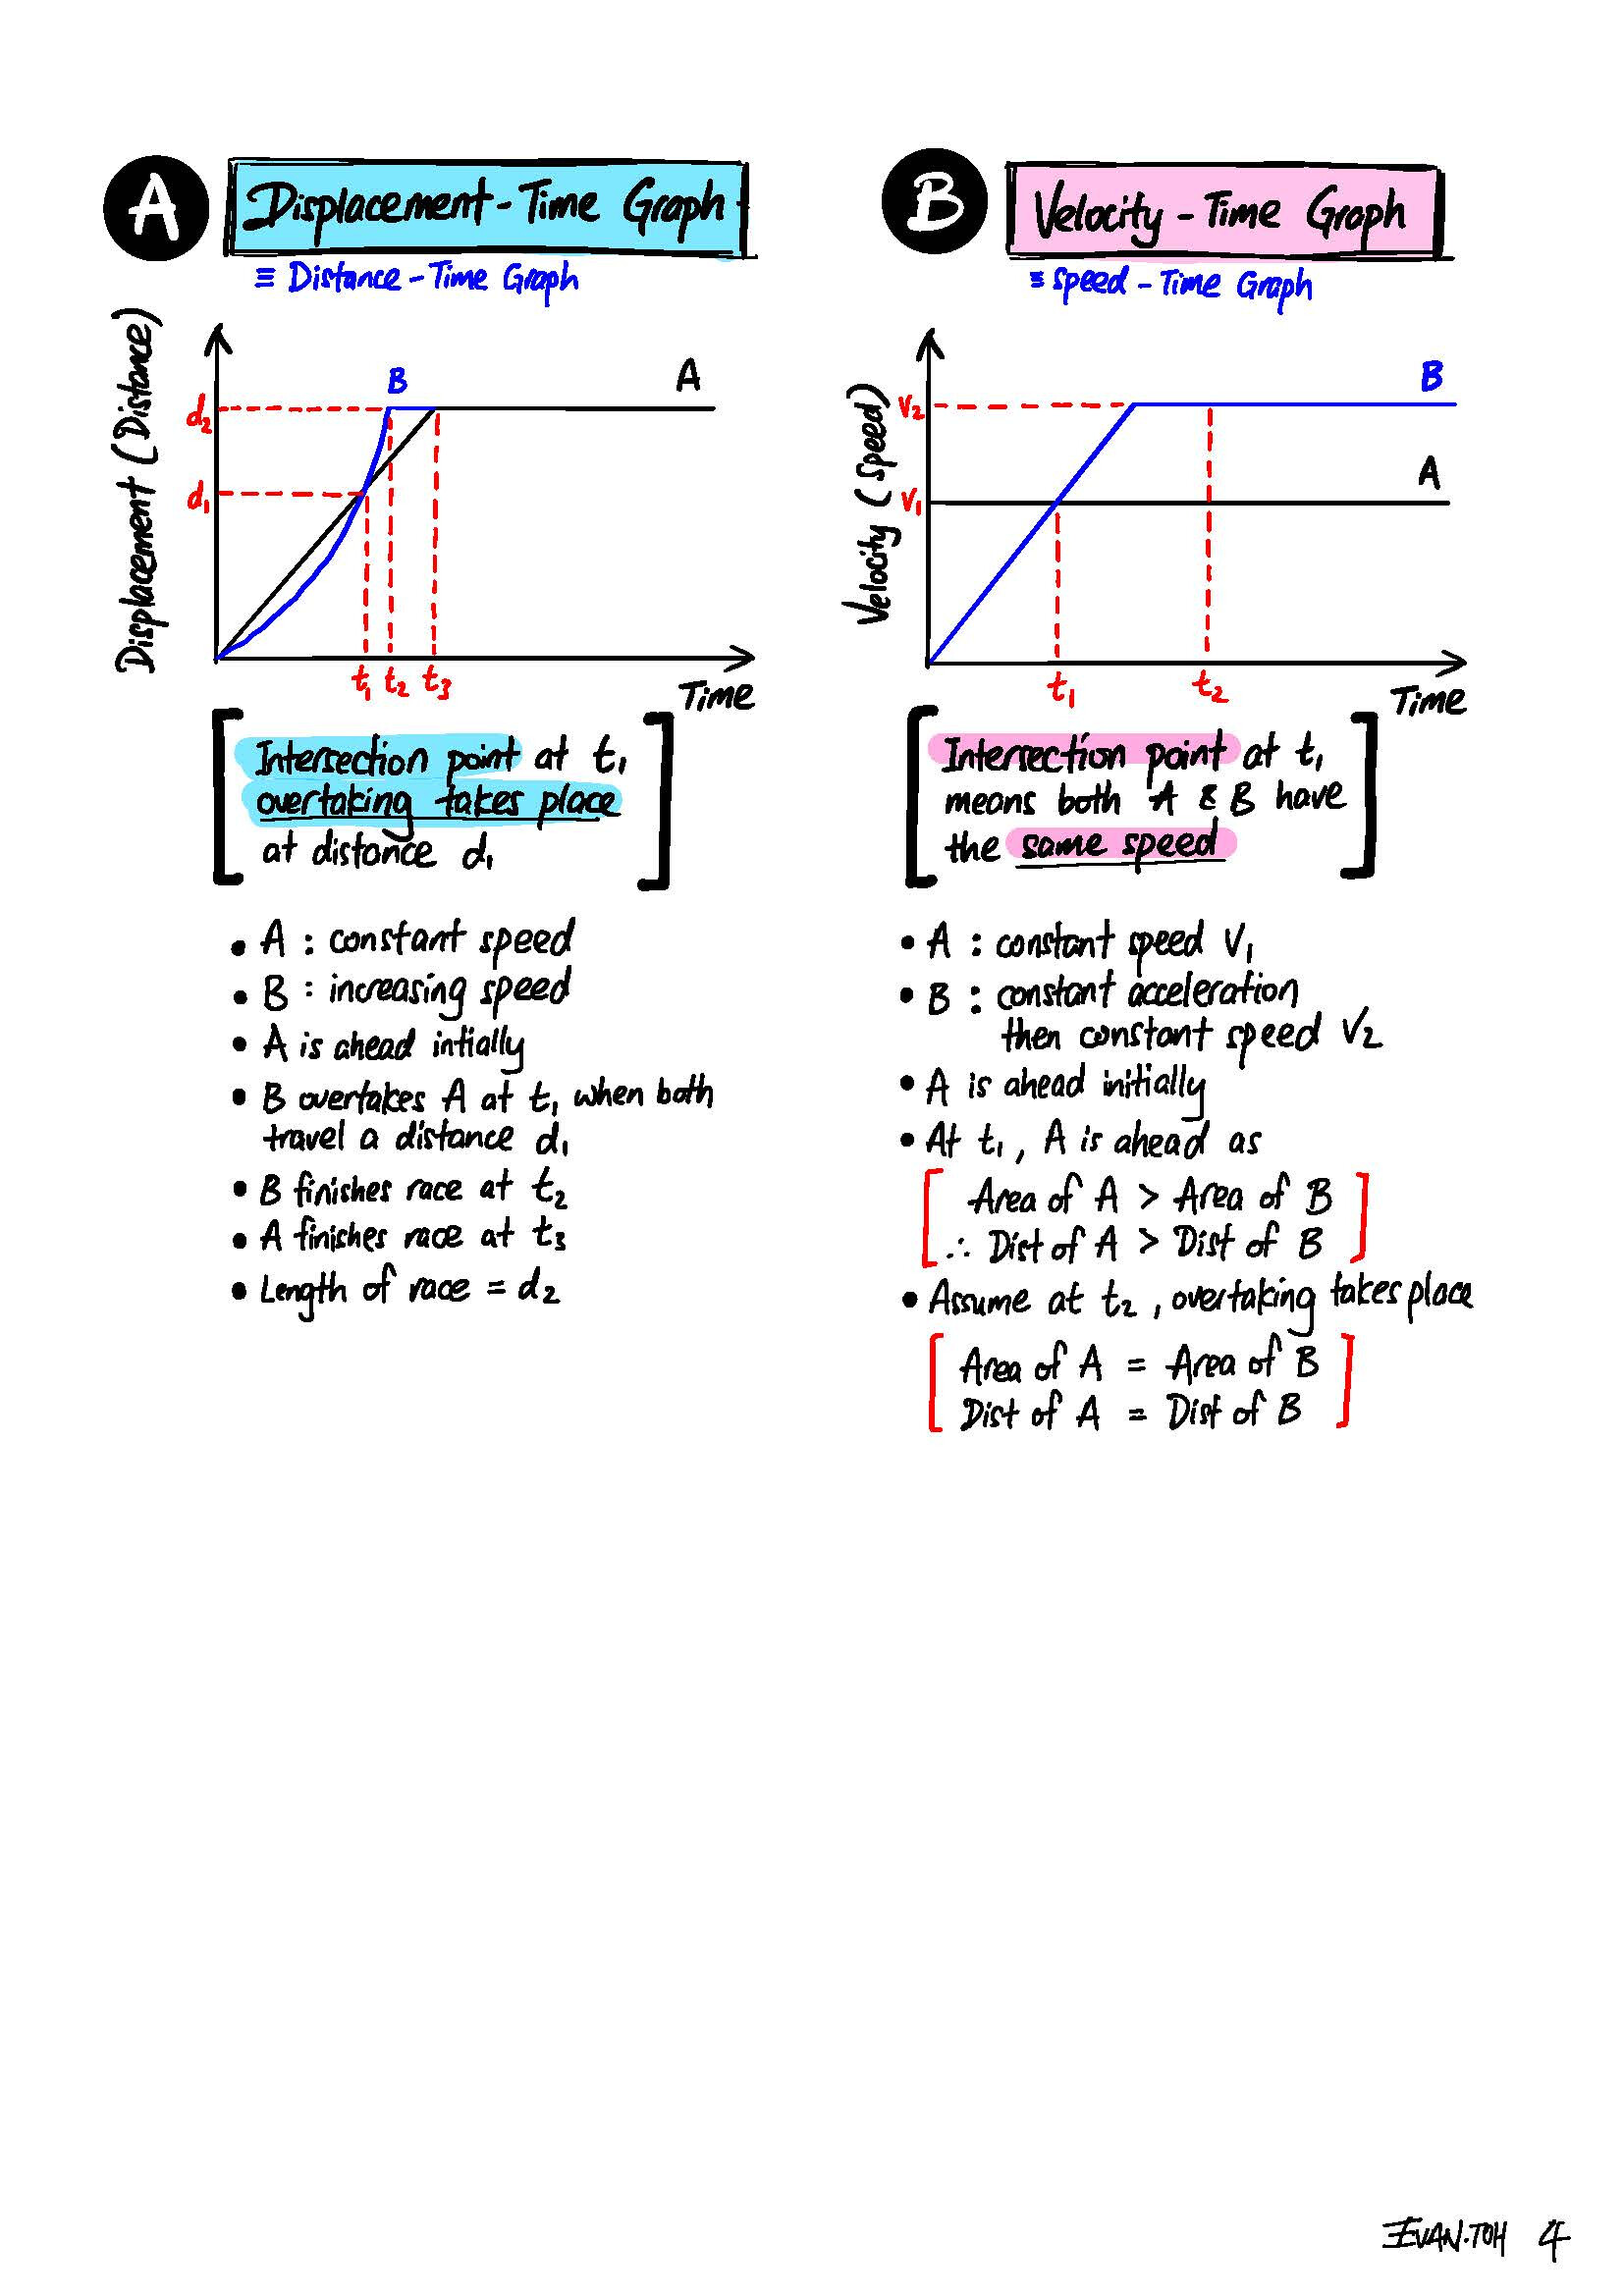 A
Displacement - Time Graph
≡ Distance - Time Graph
Displacement (Distance)
d2
d1
B
A
t1 t2 t3
Time
[Intersection point at t1
overtaking takes place
at distance d1]
• A : constant speed
• B : increasing speed
• A is ahead intially
• B overtakes A at t1 when both
travel a distance d1
• B finishes race at t2
• A finishes race at t3
• Length of race = d2
B
Velocity - Time Graph
≡ Speed - Time Graph
Velocity (Speed)
V2
V1
B
A
t1 t2
Time
[Intersection point at t1
means both A & B have
the same speed]
• A : constant speed V1
• B : constant acceleration
then constant speed V2
• A is ahead initially
• At t1, A is ahead as
[Area of A > Area of B
∴ Dist of A > Dist of B]
• Assume at t2, overtaking takes place
[Area of A = Area of B
Dist of A = Dist of B]
EVAN.TOH 4